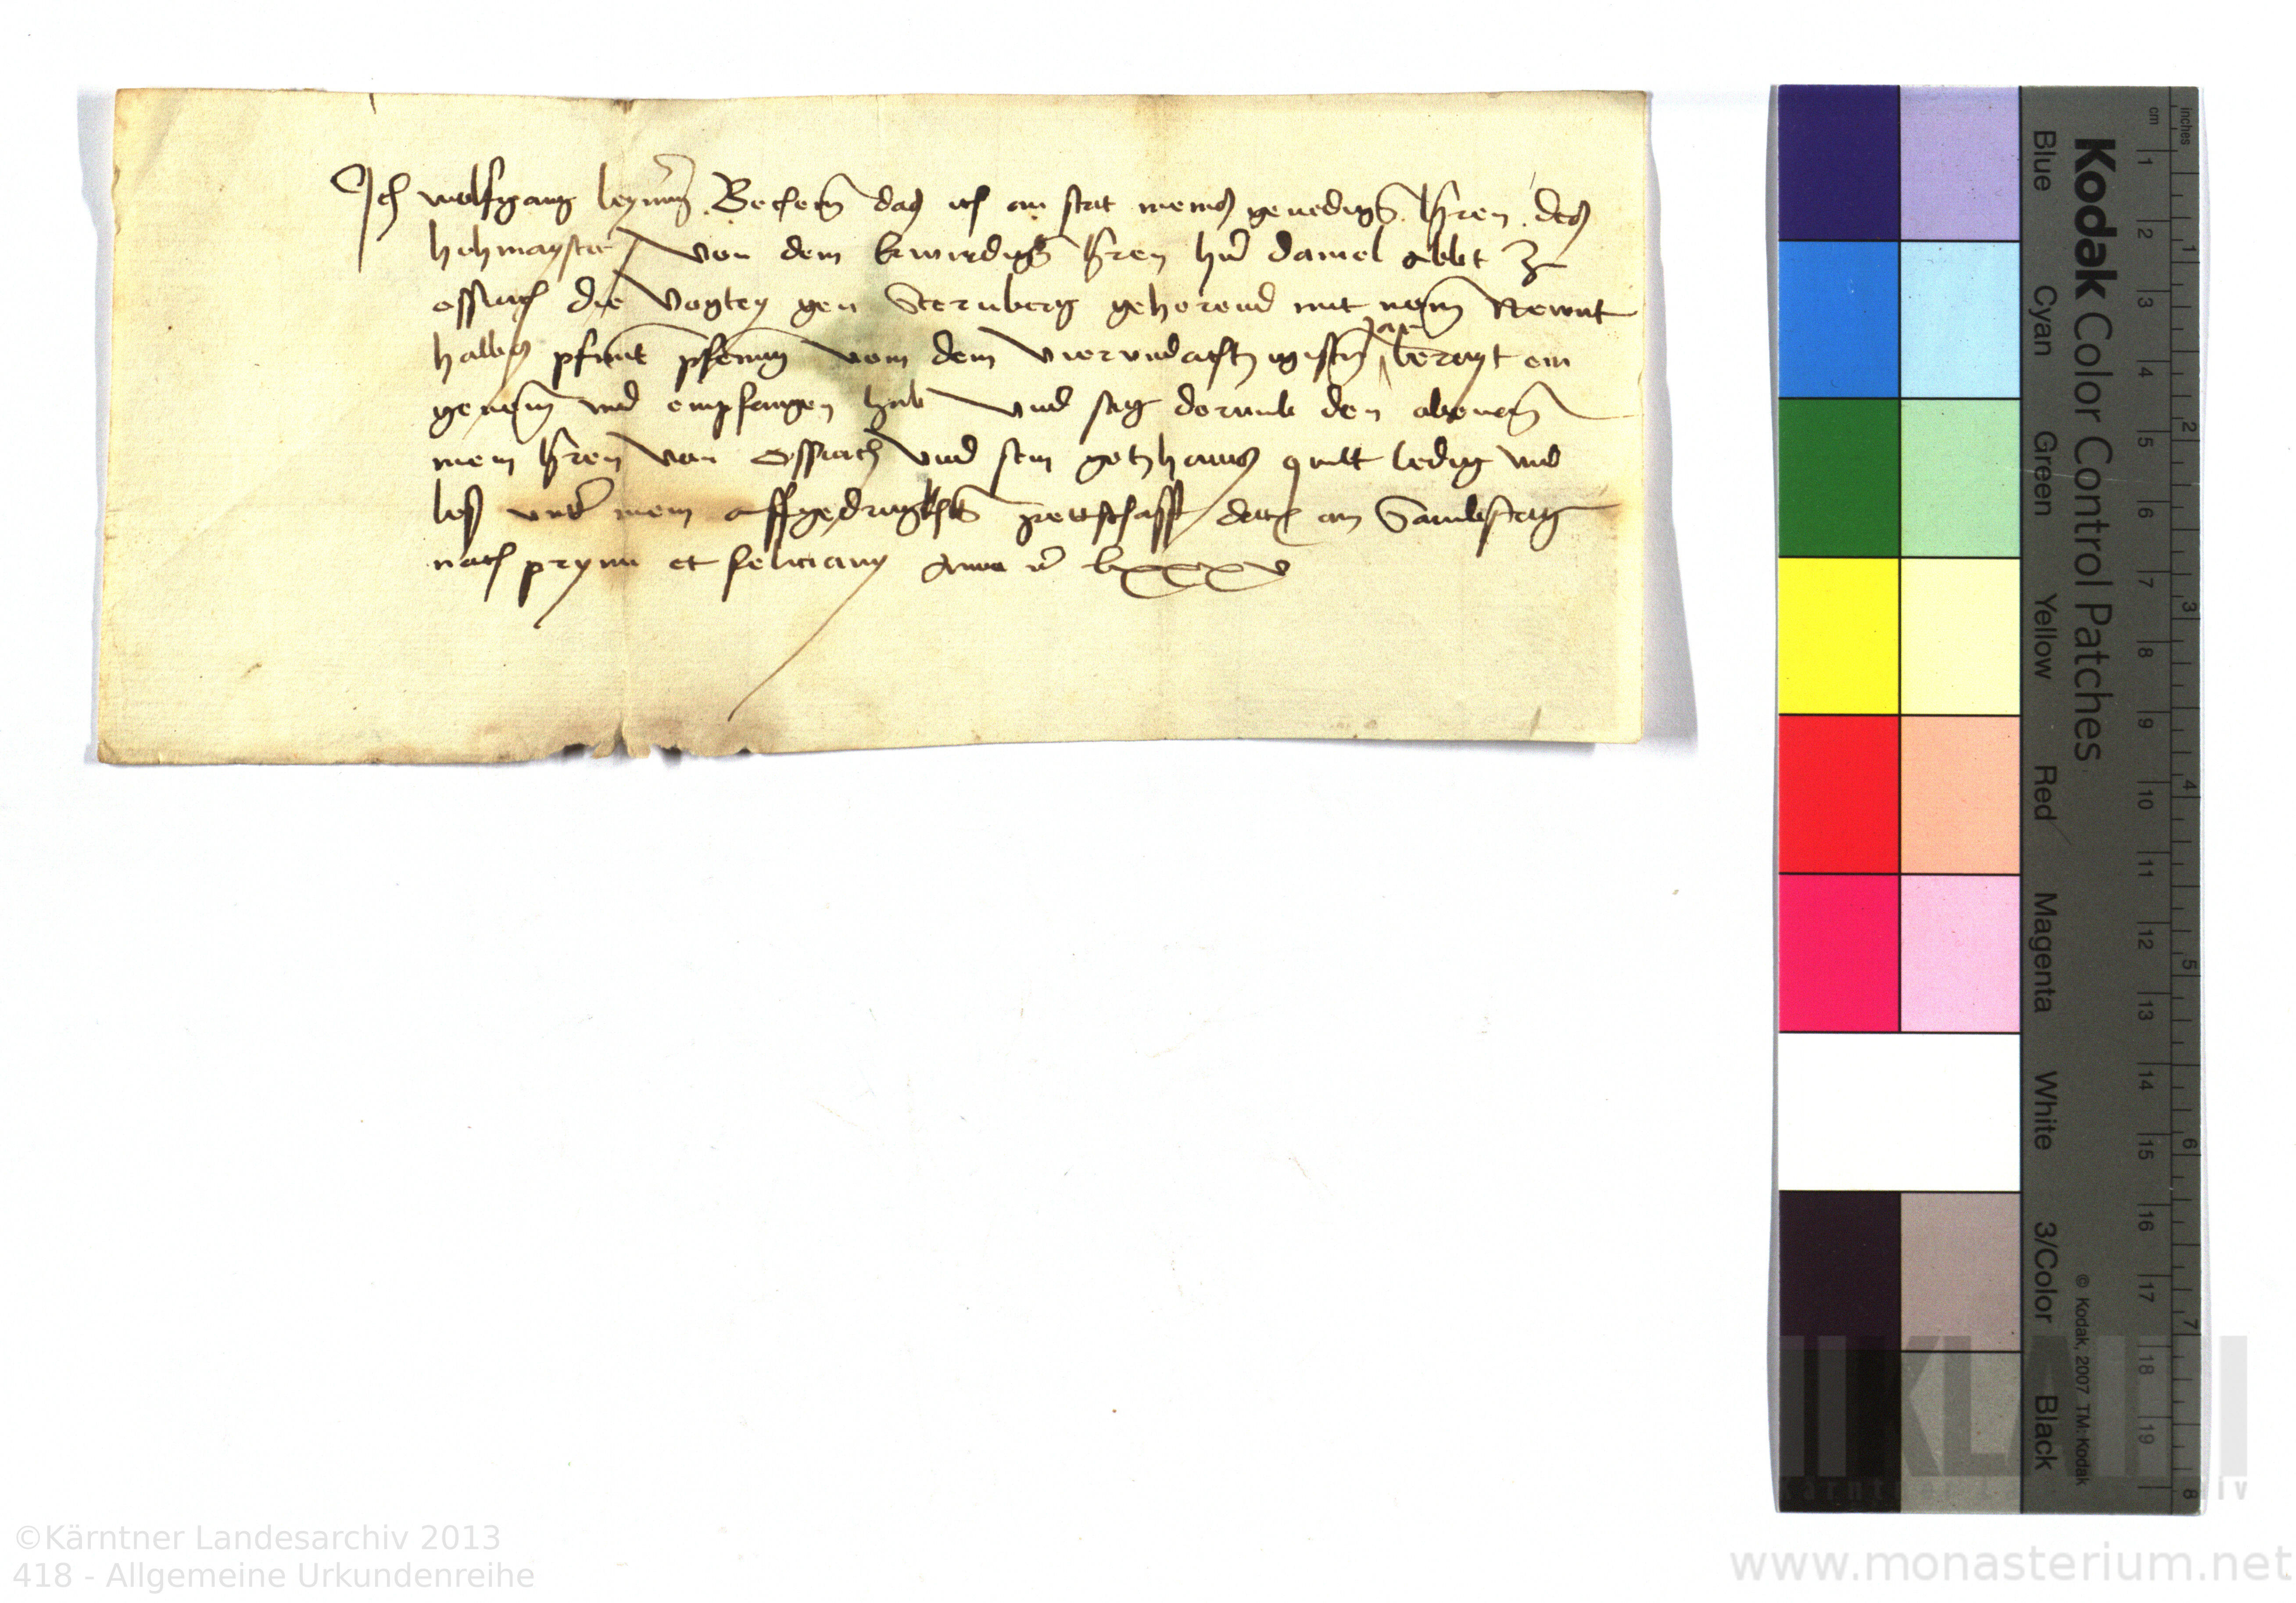 Ich wolfgang Beken das ich an stat meins genedign hren des
hohmayster von dem Erwirdign hren hrn daniel abbt zu
ossiach die Vogtey gen Sternberg gehorend mit nam Newnt
halbs pfunt pfening vom dem Vierundachtzigistn jar berayt ein
genom und empfangen hab Und sag dorumb den obgenan
mein hren von Ossiach Und sein gotzhaws quitt ledig und
los unter mein auffgedrugkhtn petschafft datum am Sambstag
nach prymi et feliciany Anno &c lxxxv
Kodak Color Control Patches
Blue Cyan Green Yellow Red Magenta White 3/Color Black
© Kodak, 2007 TM: Kodak
cm 1 2 3 4 5 6 7 8 9 10 11 12 13 14 15 16 17 18 19
inches 1 2 3 4 5 6 7 8
KLA
©Kärntner Landesarchiv 2013
418 - Allgemeine Urkundenreihe
www.monasterium.net